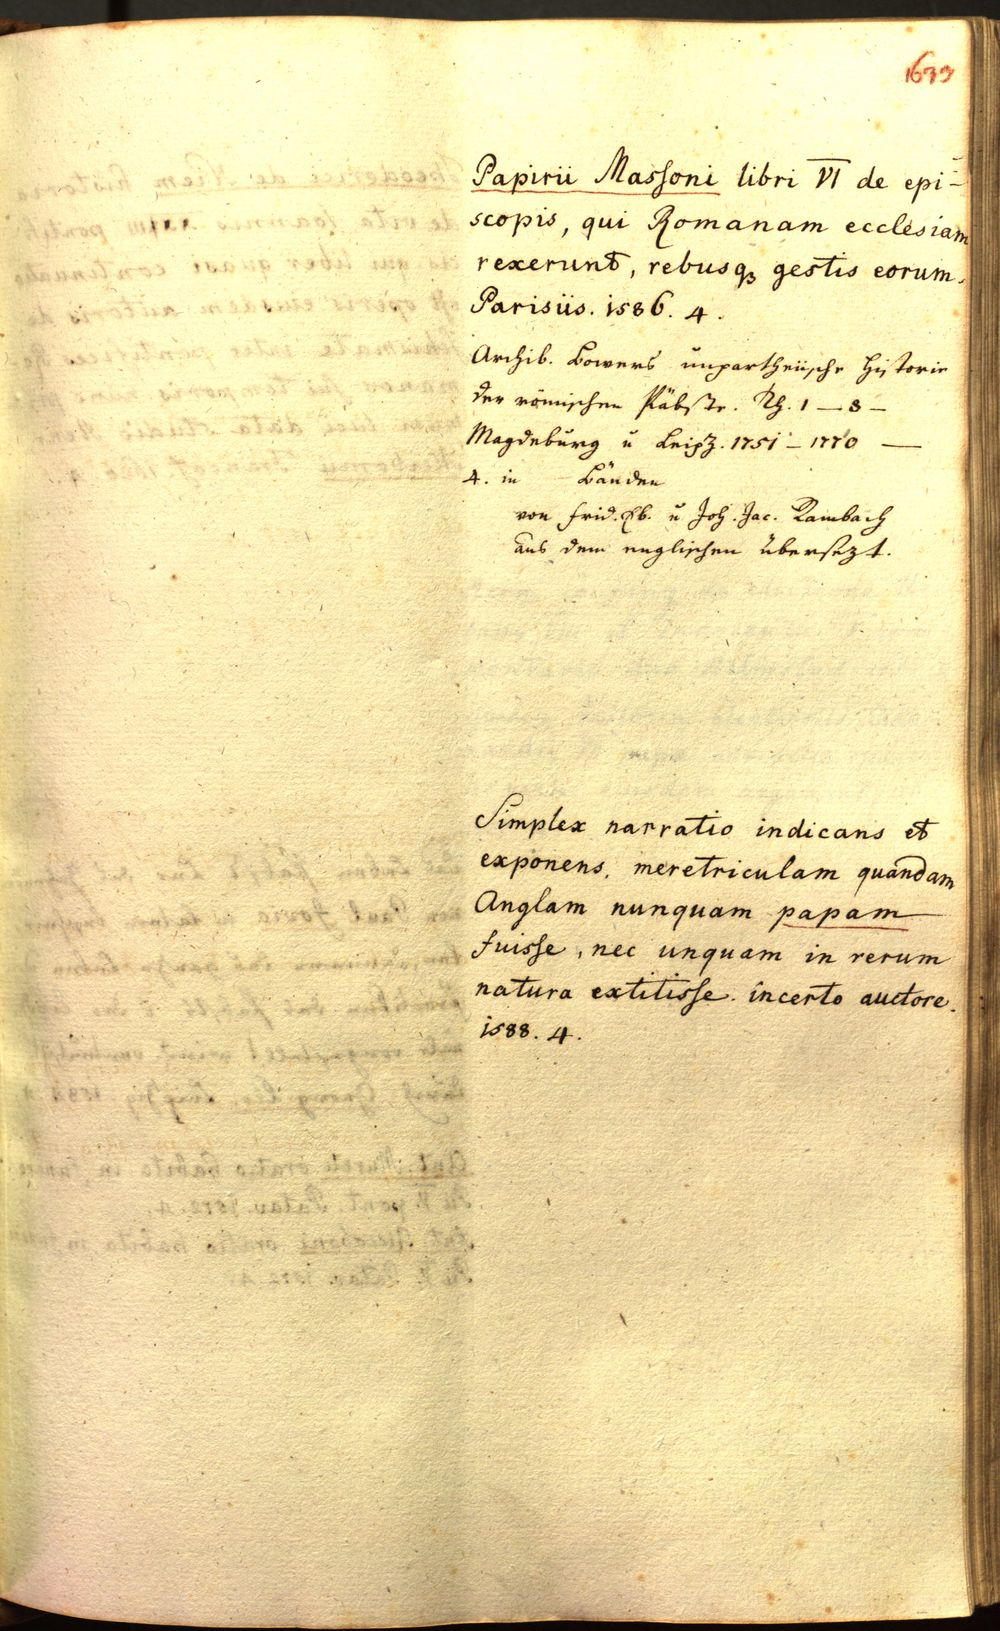 1633
Papirii Massoni libri VI de epi-
scopis, qui Romanam ecclesiam
rexerunt, rebusq gestis eorum.
Parisiis. 1586. 4.
Archib. Bowers unpartheiische Historie
der römischen Päbste. Th. 1 — 8 —
Magdeburg u Leipz. 1751 — 1770 —
4. in Bänden
von Frid. Eb. u Joh. Jac. Rambach
aus dem englischen übersezt.
Simplex narratio indicans et
exponens, meretriculam quandam
Anglam nunquam papam
fuisse, nec unquam in rerum
natura extitisse. incerto auctore.
1588. 4.